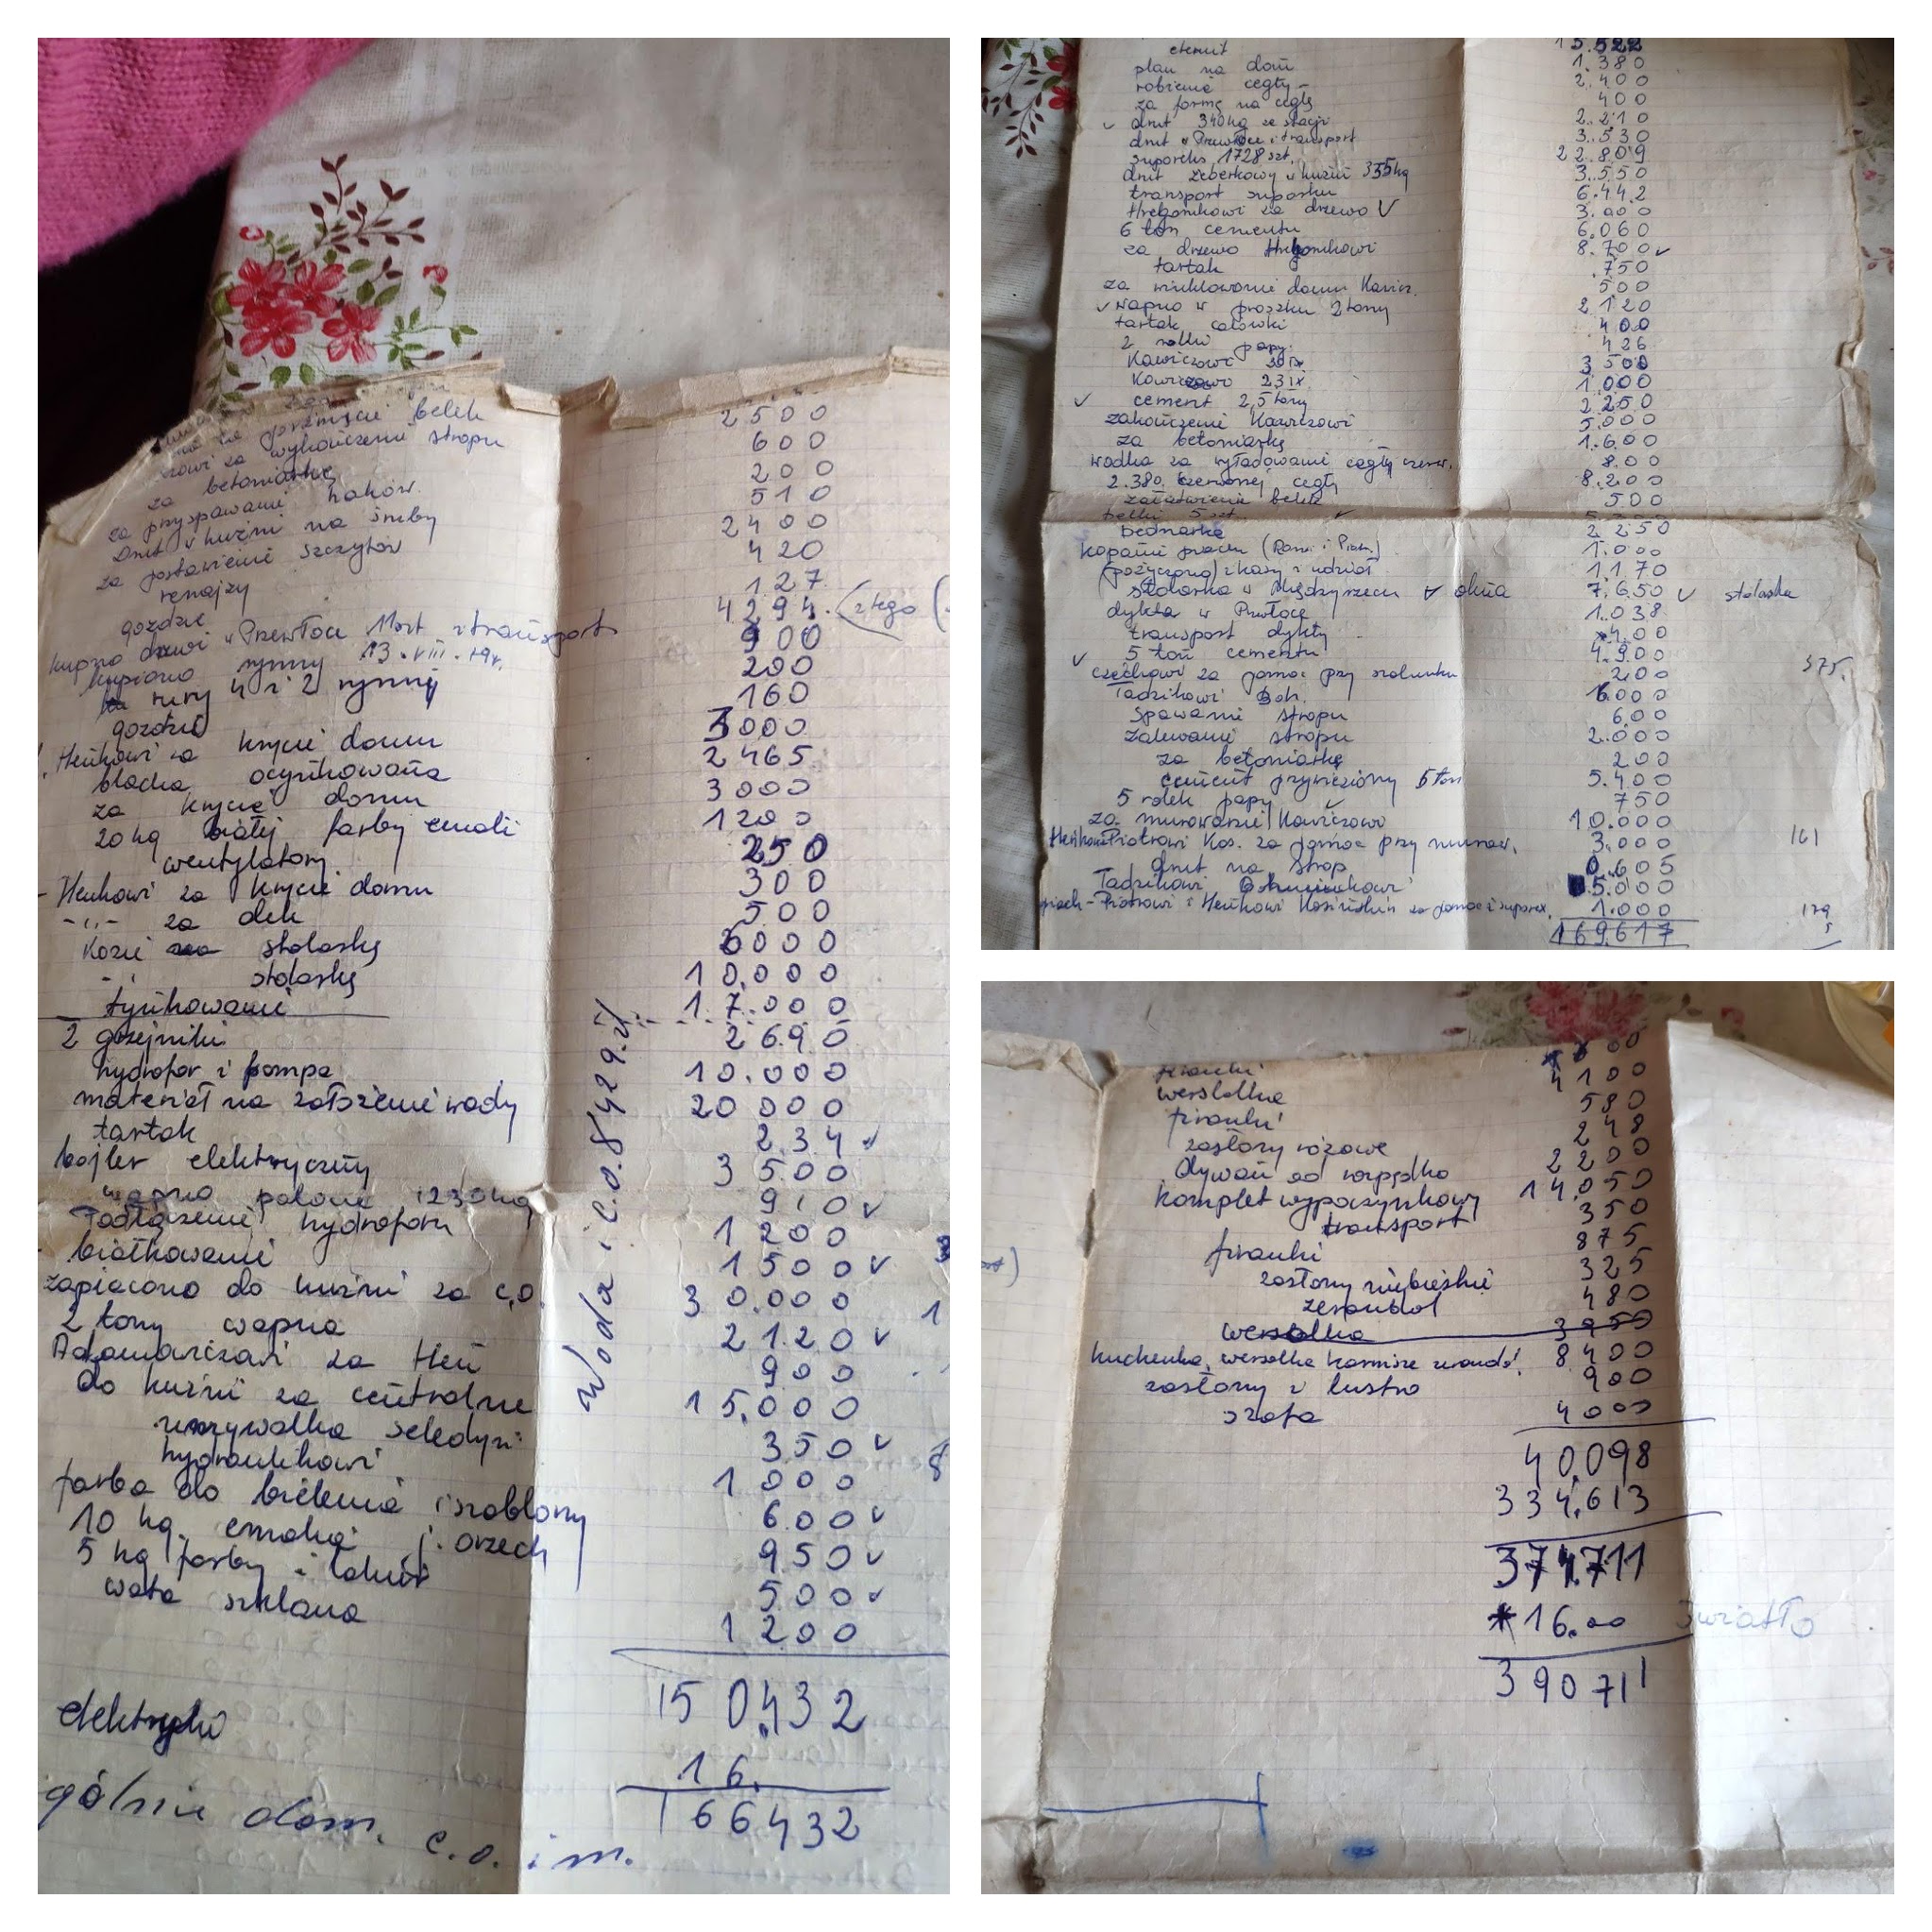 za przycięcie belek 2500
za wykończenie stropu 600
za betoniarkę 200
za przyspawanie haków 510
Drut w kuźni na śruby 2400
za postawienie szczytów 420
127
gozdzie 4294. z tego (
kupno drzwi w Przewłoce 11szt z transport 900
kupiono rynny 13.VIII.79r. 200
rury 4 i 2 rynny 160
gozdzie 3000
Heńkowi za krycie domu 2465
blacha ocynkowana 3000
za krycie domu 1200
20 kg białej farby emali 250
wentylatory 300
- Heńkowi za krycie domu 500
-,,- za dek 6000
Kozie za stolarkę 10.000
stolarkę 17.000
tynkowanie 2690
2 grzejniki 10.000
hydrofor i pompa 20 000
materiał na założenie wody 234 ✓
tartak 3500
bojler elektryczny 910 ✓
wapno palone 1230kg 1200
Podłączenie hydroforu 1500 ✓
białkowanie 30.000
zapłacono do kuźni za c.o. 2120 ✓
2 tony wapna 900
Adamowiczowi za Hen 15.000
do kuźni za centralne 350 ✓
umywalka seledyn 1000
hydraulikowi 600 ✓
farba do bielenia i szablony 950 ✓
10 kg. emalia j. orzech 500 ✓
5 kg farby i lakier 1200
wata szklana
Woda i c.o. 84929.zł
150.432
elektryka 16.
166432
gólnie dom. c.o. i m.
eternit 15.522
plan na dom 1.380
robienie cegły 2.400
za formę na cegłę 400
✓ drut 340kg ze stacji 2.210
drut w Przewłoce i transport 3.530
suporeks 1728 szt. 22.809
drut żeberkowy w kuźni 355kg 3.550
transport suporksu 6.442
Hrygonikowi za drzewo ✓ 3.000
6 ton cementu 6.060
za drzewo Hrygonikowi 8.700 ✓
tartak .750
za murowanie domu Kawicz. 500
✓ wapno w proszku 2 tony 2120
tartak calówki 400
2 rolki papy. 426
Kawiczowi 20 IX 3 500
Kawiczowi 23 IX 1.000
✓ cement 2,5 tony 2 250
zakończenie Kawiczowi 5.000
za betoniarkę 1.600
wódka za wyładowanie cegły czerw. 8.00
2.380 czerwonej cegły 8.200
załatwienie belek 500
belki 5 szt. ✓
bednarka 2 250
kopanie piwnicy 1.000
(pożyczono) z kasy z udział 1.170
stolarka w Międzyrzecu ✓ okna 7.650 ✓ stolarka
dykta w Przewłoce 1.038
transport dykty 4.00
✓ 5 ton cementu 4.900
Czechowi za pomoc przy szalunku 200 375.
Tadzikowi Boh. 1000
Spawanie stropu 6.00
zalewanie stropu 2.000
za betoniarkę 200
cement przywieziony 5 ton 5.400
5 rolek papy ✓ 750
za murowanie Kawiczowi 10.000
Heńkowi Piotrowi Kos. za pomoc przy murow. 3.000 161
drut na strop 0.605
Tadzikowi 5.000
Piotrowi i Heńkowi za pomoc i suporex. 1.000 179
169.617
firanki
wersalka 4100
firanki 580
zasłony różowe 248
Dywan 2200
komplet wypoczynkowy 14.050
transport 350
firanki 875
zasłony niebieskie 325
żerandol 480
wersalka 3950
kuchenka, wersalka karnisze żerandol 8400
zasłony i lustro 900
szafa 4000
40.098
334.613
374.711
16.00 światło
390711